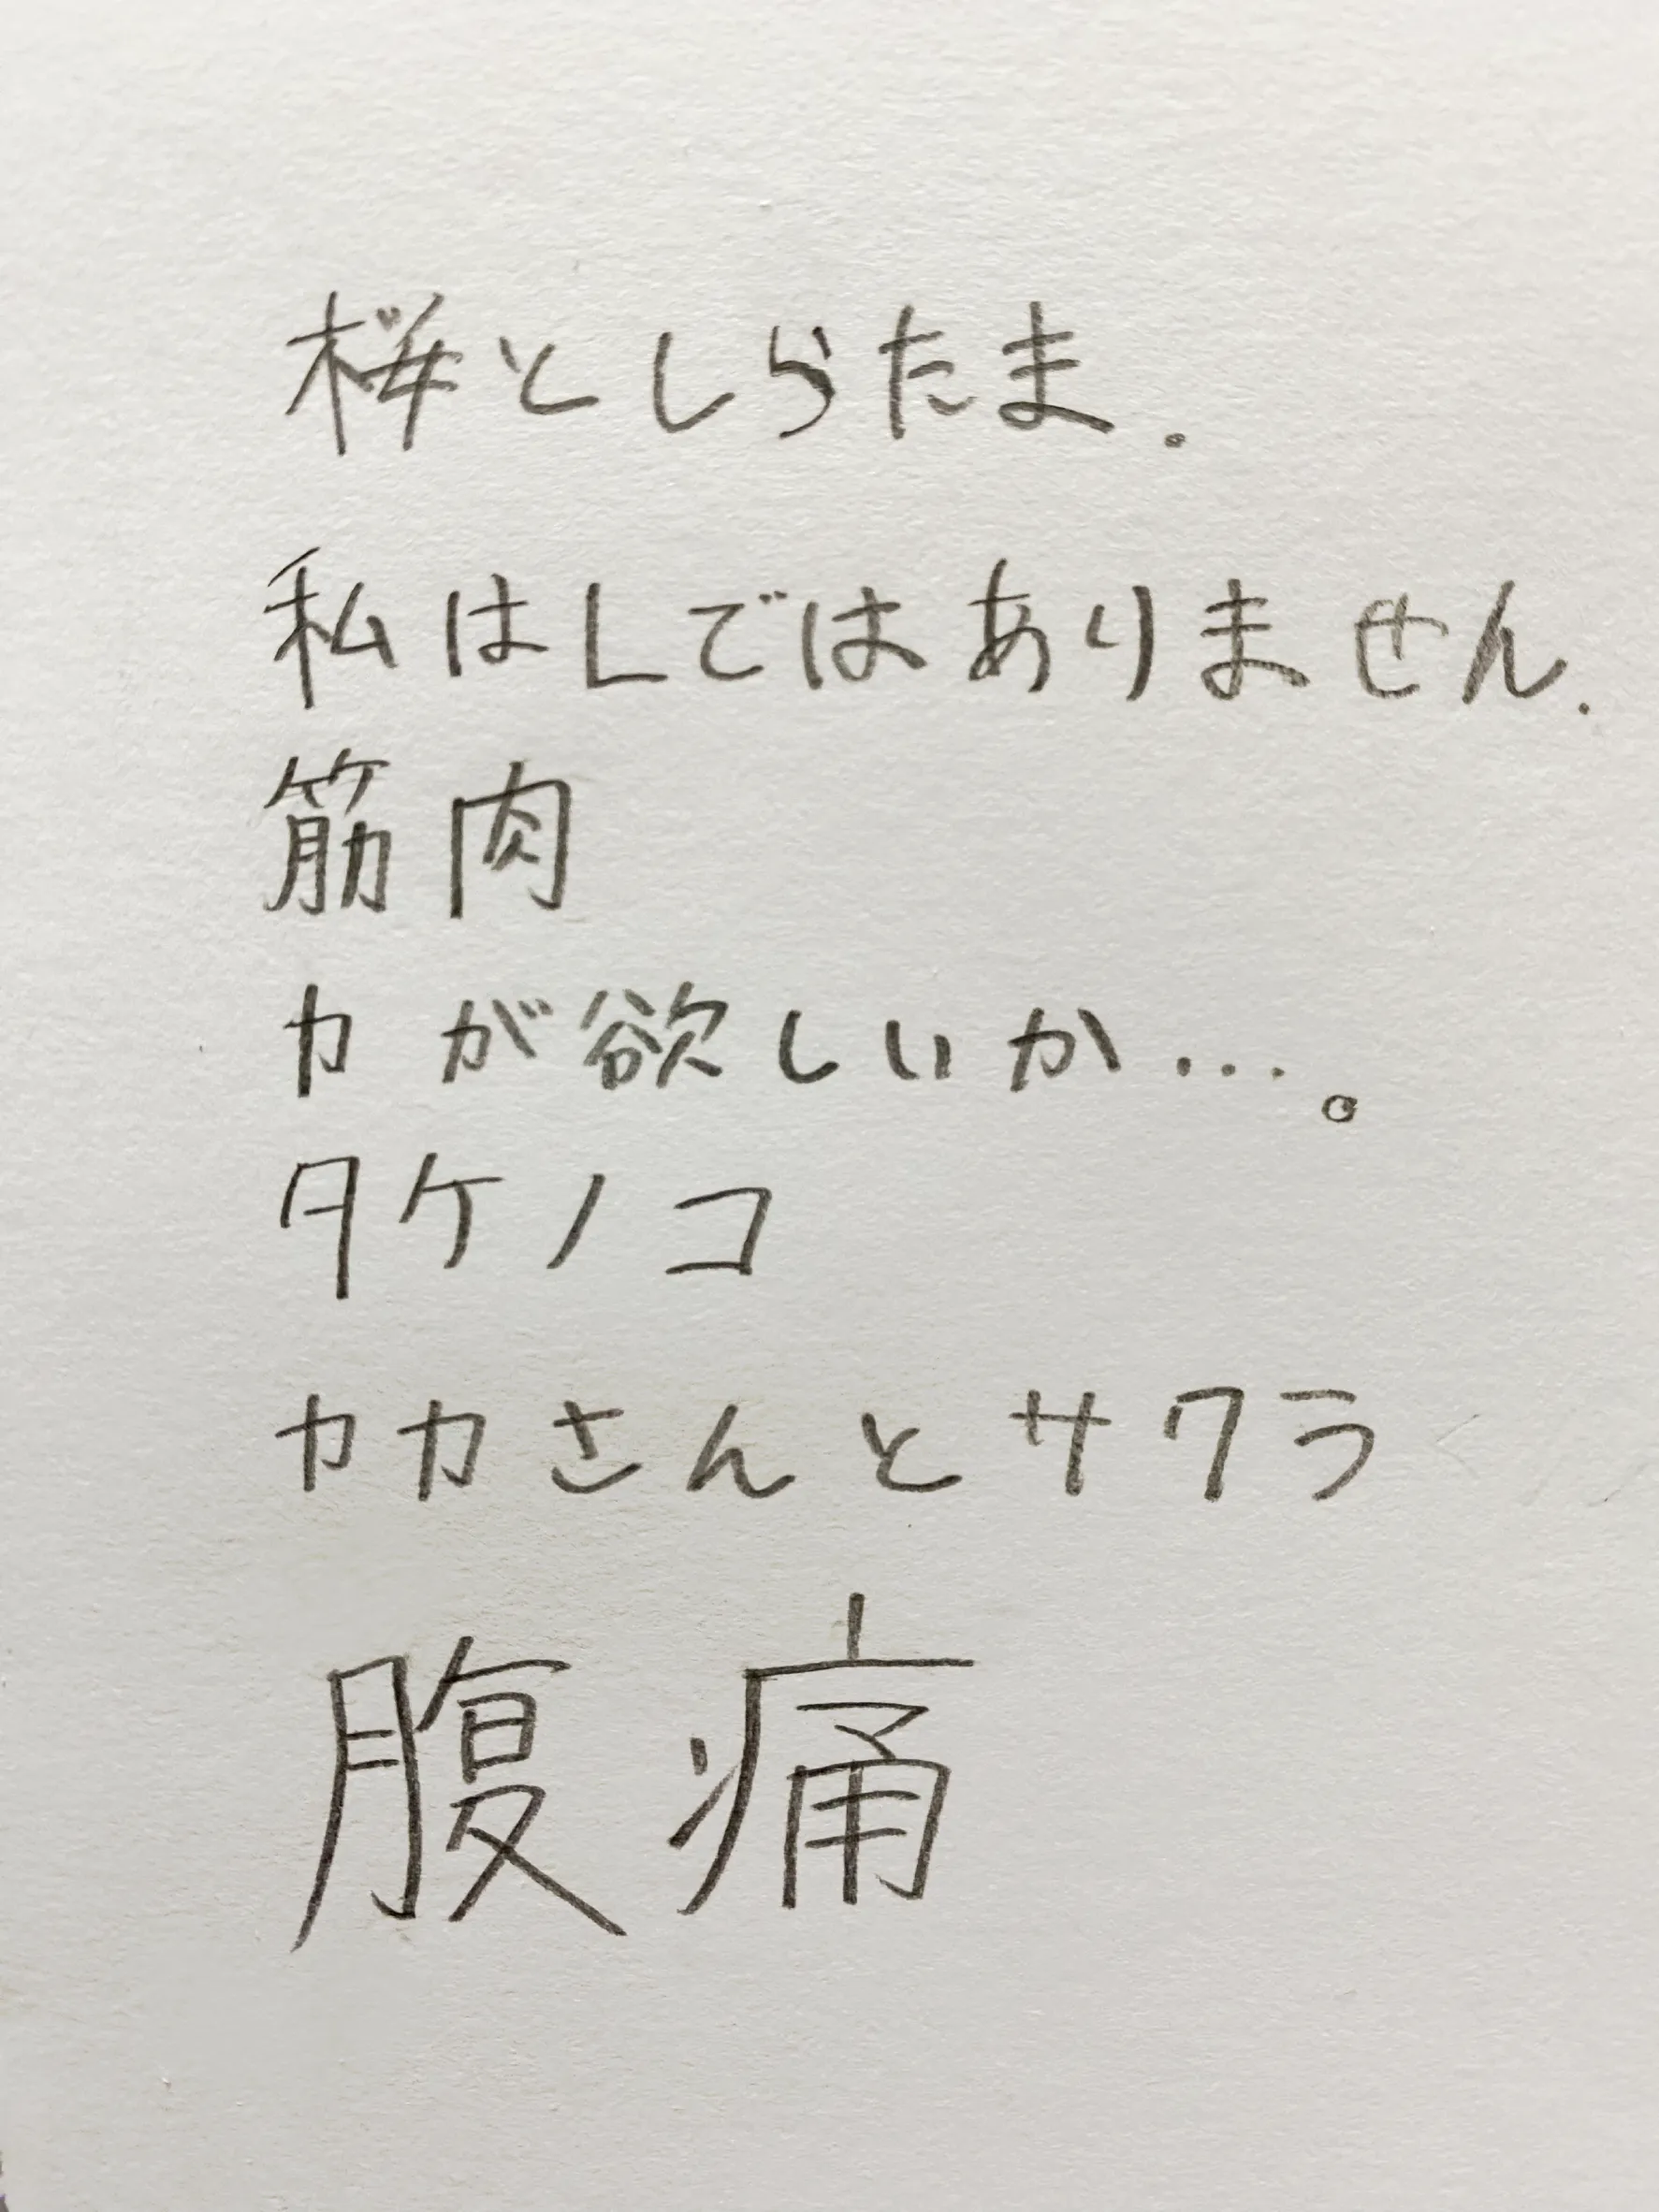 桜としらたま.
私はLではありません.
筋肉
力が欲しいか...。
タケノコ
カカさんとサクラ
腹痛